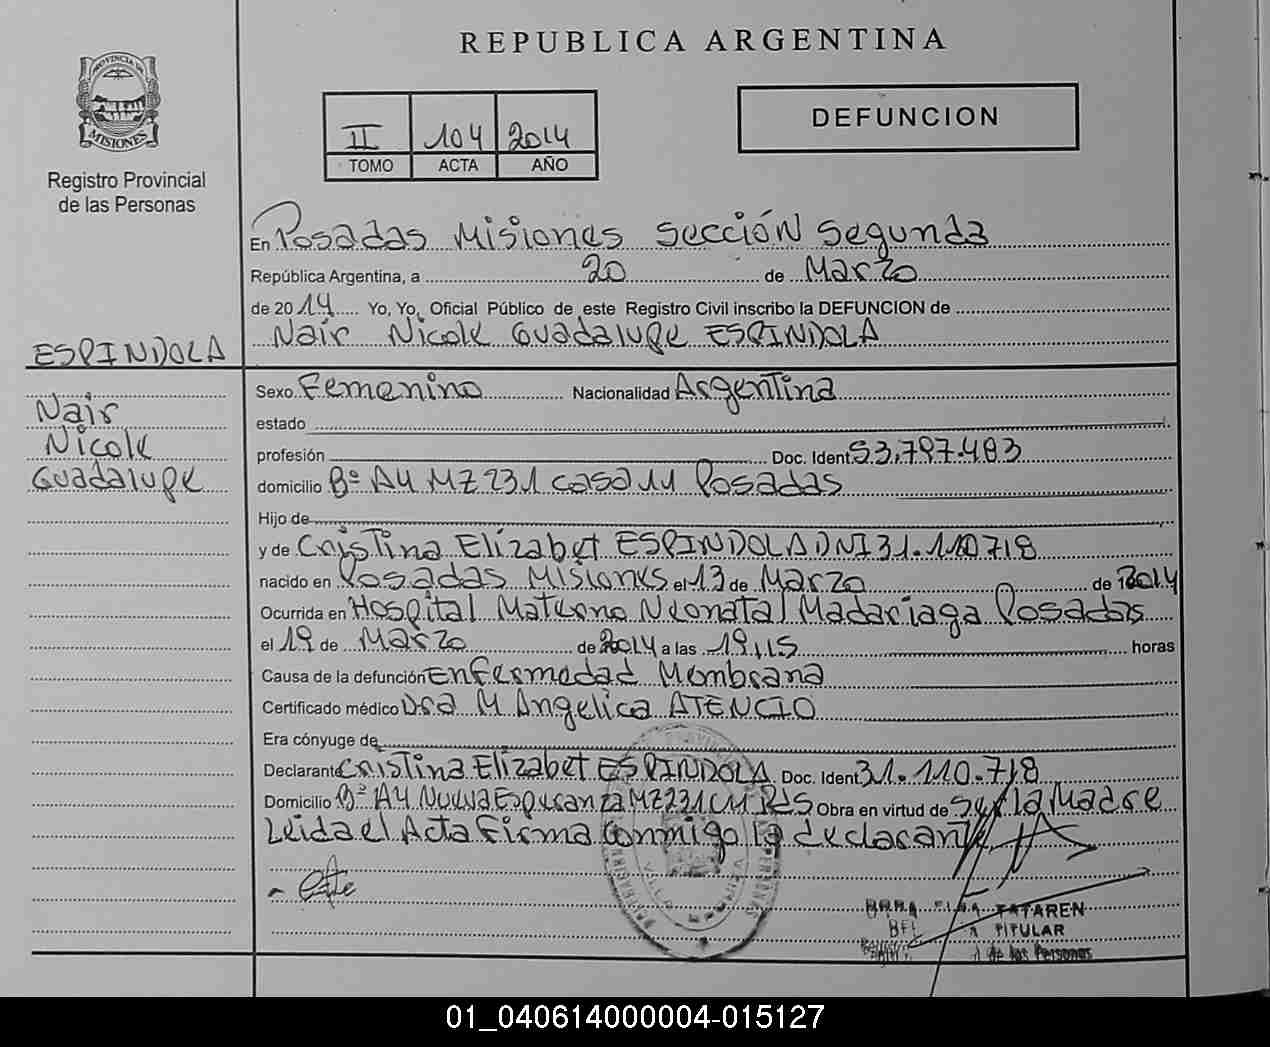 REPUBLICA ARGENTINA
PROVINCIA DE
MISIONES
Registro Provincial
de las Personas
II 104 2014
TOMO ACTA AÑO
DEFUNCION
En Posadas Misiones Sección Segunda
República Argentina, a 20 de Marzo
de 2014 Yo, Yo, Oficial Público de este Registro Civil inscribo la DEFUNCION de
Nair Nicole Guadalupe ESPINDOLA
ESPINDOLA
Nair
Nicole
Guadalupe
Sexo Femenino Nacionalidad Argentina
estado
profesión Doc. Ident. 53.797.483
domicilio Bº A4 MZ 231 casa 11 Posadas
Hijo de
y de Cristina Elizabet ESPINDOLA DNI 31.110718
nacido en Posadas Misiones el 13 de Marzo de 2014
Ocurrida en Hospital Materno Neonatal Madariaga Posadas
el 19 de Marzo de 2014 a las 19,15 horas
Causa de la defunción Enfermedad Membrana
Certificado médico Dra M Angelica ATENCIO
Era cónyuge de
Declarante Cristina Elizabet ESPINDOLA Doc. Ident. 31.110.718
Domicilio Bº A4 Nueva Esperanza MZ 231 C 11 Pds Obra en virtud de Ser la Madre
Leida el Acta Firma conmigo la declarante
TATAREN
TITULAR
de las Personas
01_040614000004-015127